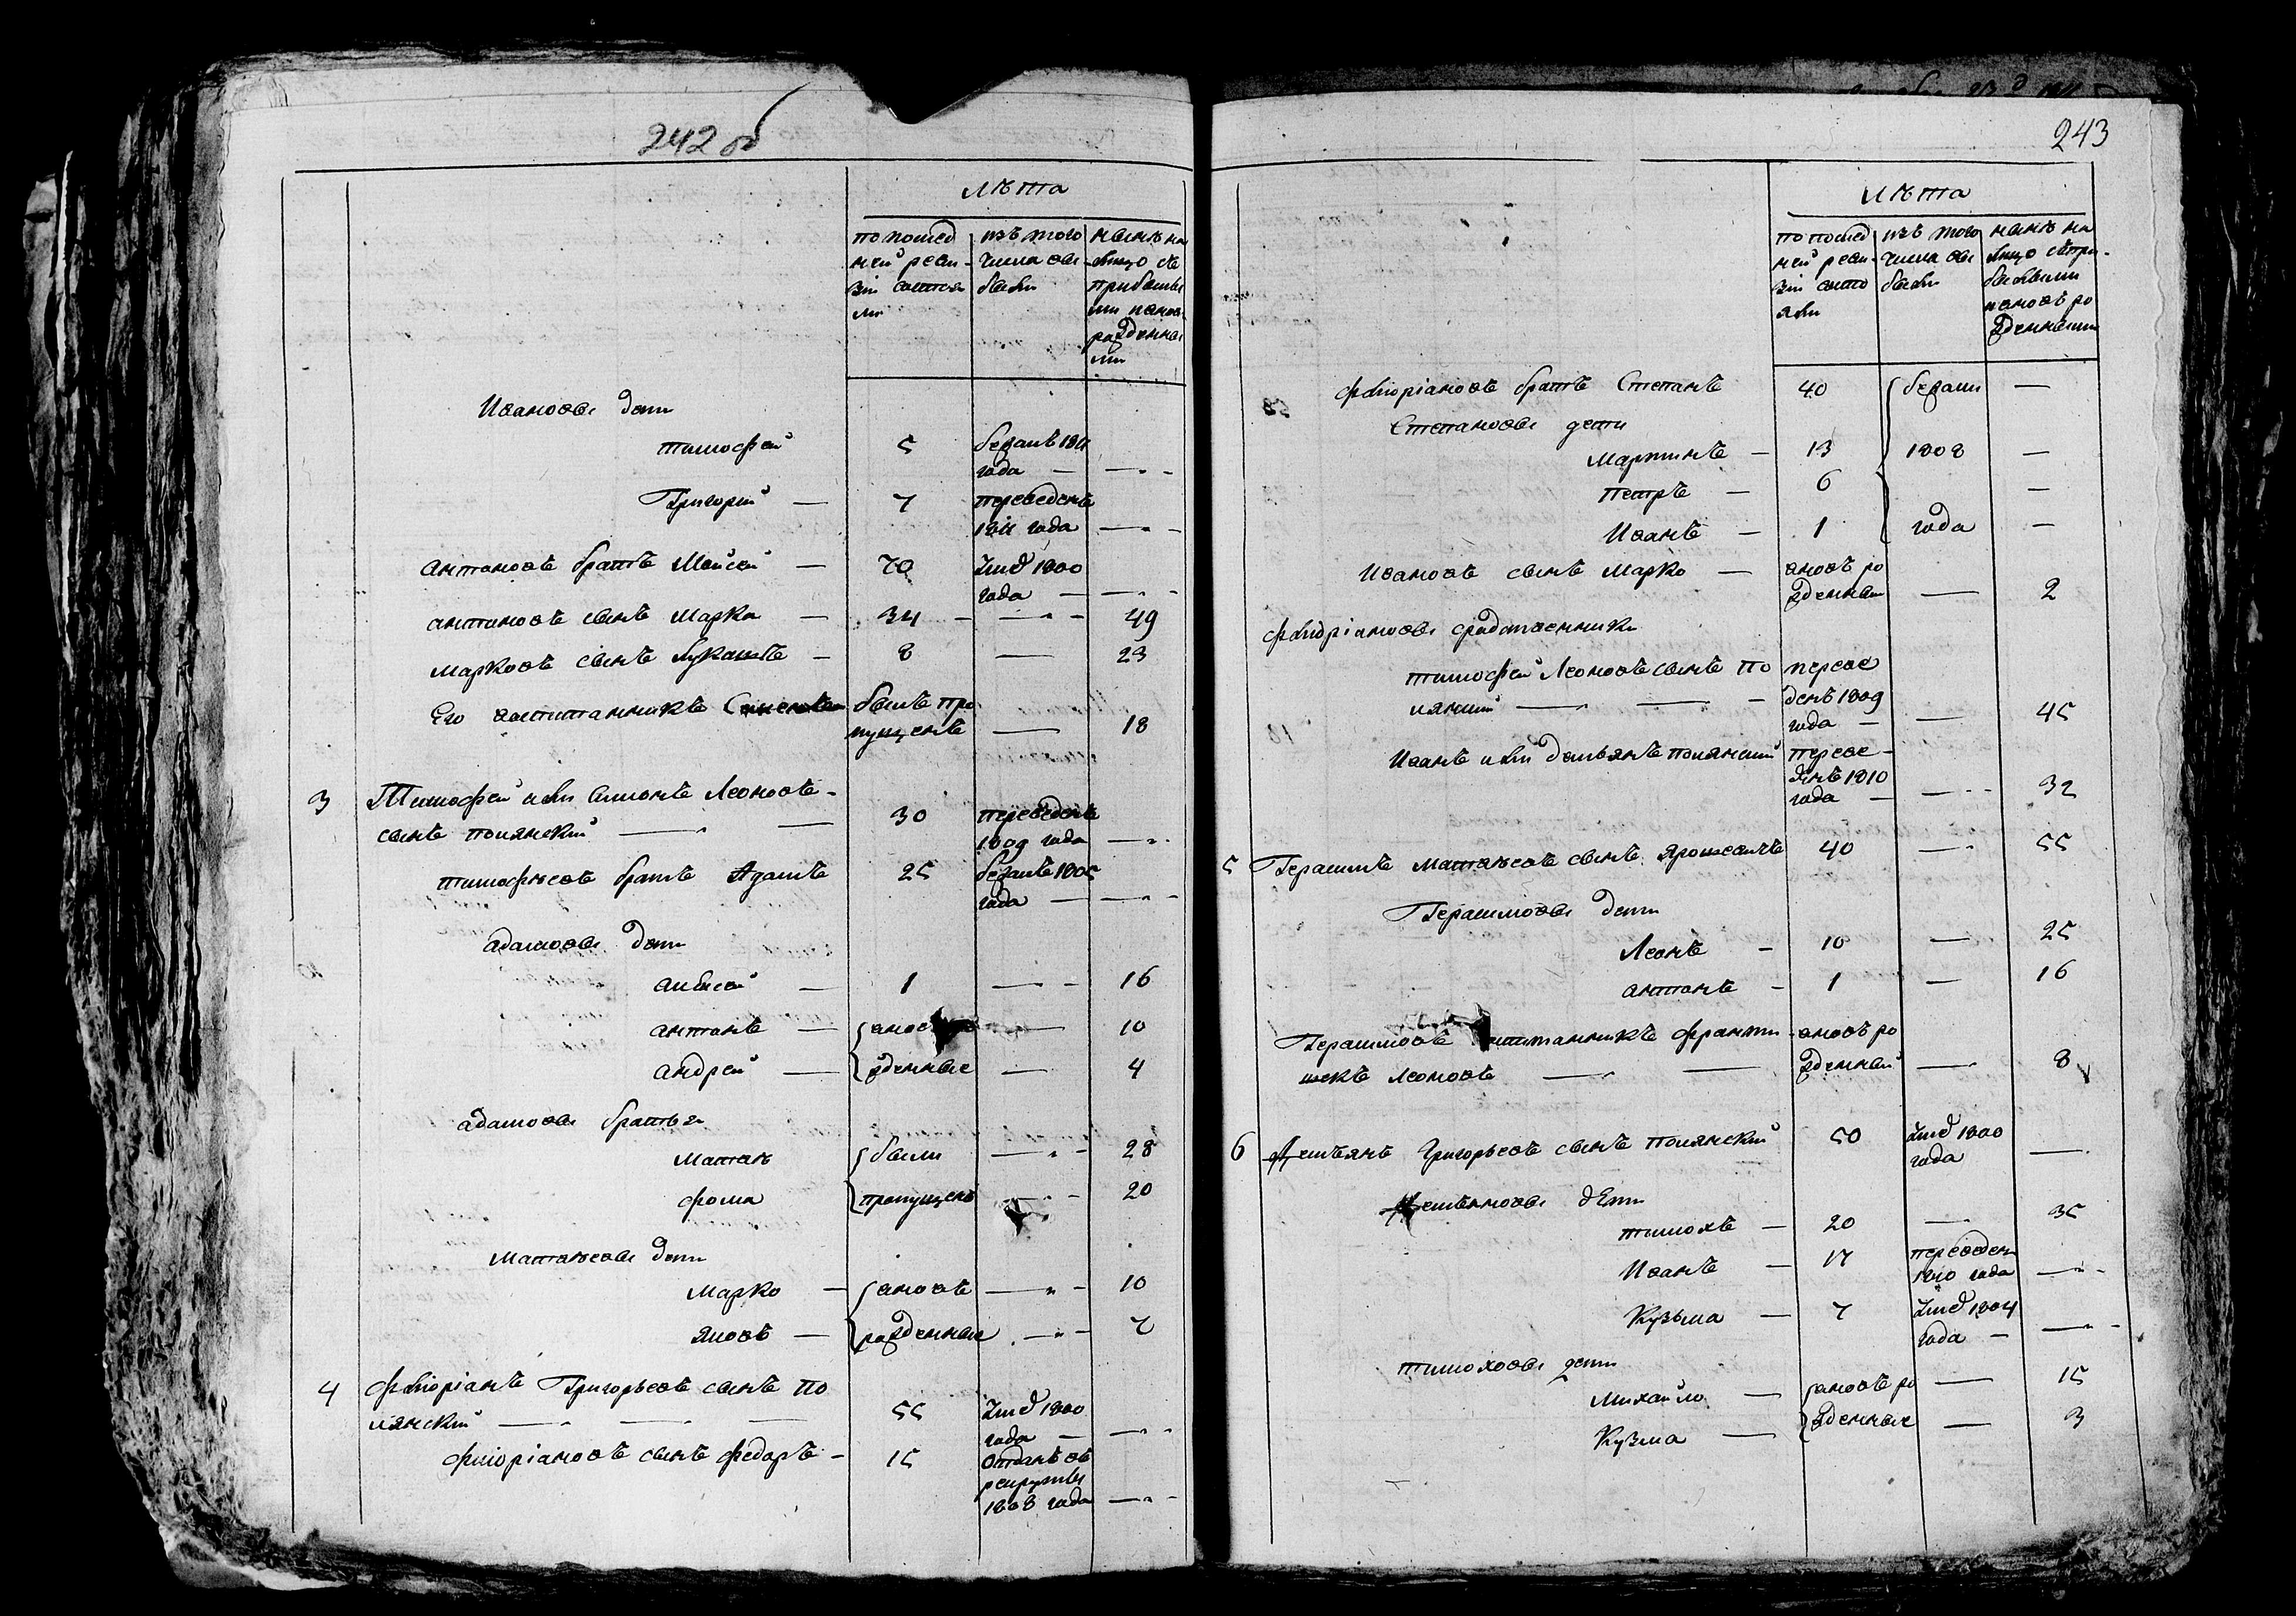 242 об
Лѣта
по послед
ней реви-
зіи состоя
ли
изъ того
числа вы
были
нынѣ на
лицо съ
прибылы
ми и внов
рожденны
ми
Ивановы дети
Тимофей 5 бежалъ 1811
года
Григорий 7 переведенъ
1811 года
Антоновъ братъ Мойсей 70 умѣ 1800
года
Антоновъ сынъ Марко 34 49
Марковъ сынъ Лукашъ 8 23
Его воспитанникъ былъ про
пущенъ 18
3 Тимофей или Симонъ Леоновъ
сынъ Полянский 30 переведенъ
1809 года
Тимофѣевъ братъ Адамъ 25 бежалъ 1805
года
Адамовы дети
Алисей 1 16
Антонъ 10
Андрей жденные 4
Адамовы братья
Матвѣй были 28
Фома пропущены 20
Матвѣевы дети
Марко вновь 10
Яковъ рожденные 7
4 Флюріанъ Григорьевъ сынъ По
лянский 55 умѣ 1800
года
Флюріановъ сынъ Федоръ 15 Отданъ въ
рекруты
1808 года
243
Лѣта
по послед
ней реви-
зіи состо
яли
изъ того
числа вы
были
нынѣ на
лицо съ при-
былыми
и вновь ро
жденными
Флюріановъ братъ Степанъ 40 бежали
Степановы дети
Мартинъ 13 1808
Петръ 6
Иванъ 1 года
Ивановъ сынъ Марко вновь ро
жденный 2
Флюріановы сродственники
Тимофей Леоновъ сынъ По переве
лянский денъ 1809
года 45
Иванъ или Демьянъ Полянский переве-
денъ 1810
года 32
5 Герасимъ Матвѣевъ сынъ Ярошевичъ 40 55
Герасимовы дети
Леонъ 10 25
Антонъ 1 16
Герасимовъ Франти вновь ро
шекъ Леоновъ жденный 8
6 Демьянъ Григорьевъ сынъ Полянский 50 умѣ 1800
года
Демьяновы дети
Тимохъ 20 35
Иванъ 17 переведен
1810 года
Кузьма 7 умѣ 1804
года
Тимоховы дети
Михайло вновь ро 15
Кузма жденные 3